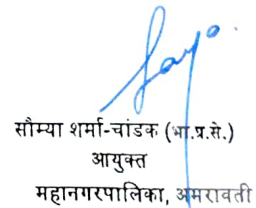 सौम्या शर्मा-चांडक (भा.प्र.से.)
आयुक्त
महानगरपालिका, अमरावती